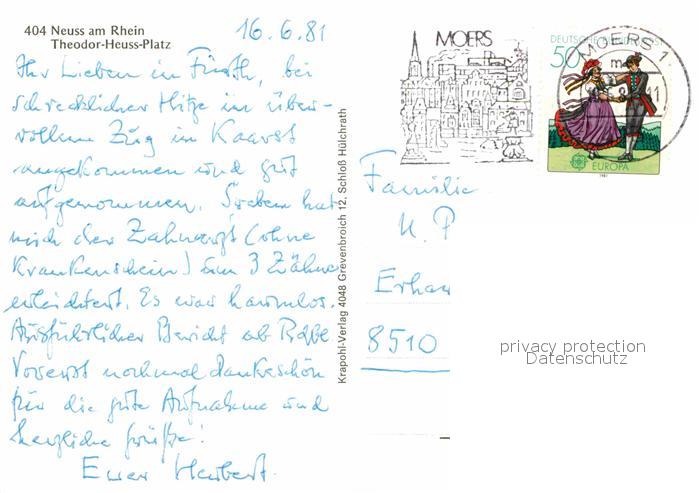 404 Neuss am Rhein
Theodor-Heuss-Platz
16.6.81
Ihr Lieben in Fürth, bei
schrecklicher Hitze im über-
vollem Zug in Kaarst
angekommen und gut
aufgenommen. Soeben hat
mich der Zahnarzt (ohne
Krankenschein) um 3 Zähne
erleichtert. Es war harmlos.
Ausführlicher Bericht ab
Vorerst nochmal dankeschön
für die gute Aufnahme und
herzliche Grüße!
Euer Herbert.
Krapohl-Verlag 4048 Grevenbroich 12, Schloß Hülchrath
MOERS
DEUTSCHE BUNDESPOST
50
EUROPA
1981
MOERS 1
Familie
H. P
Erhar
8510
privacy protection
Datenschutz